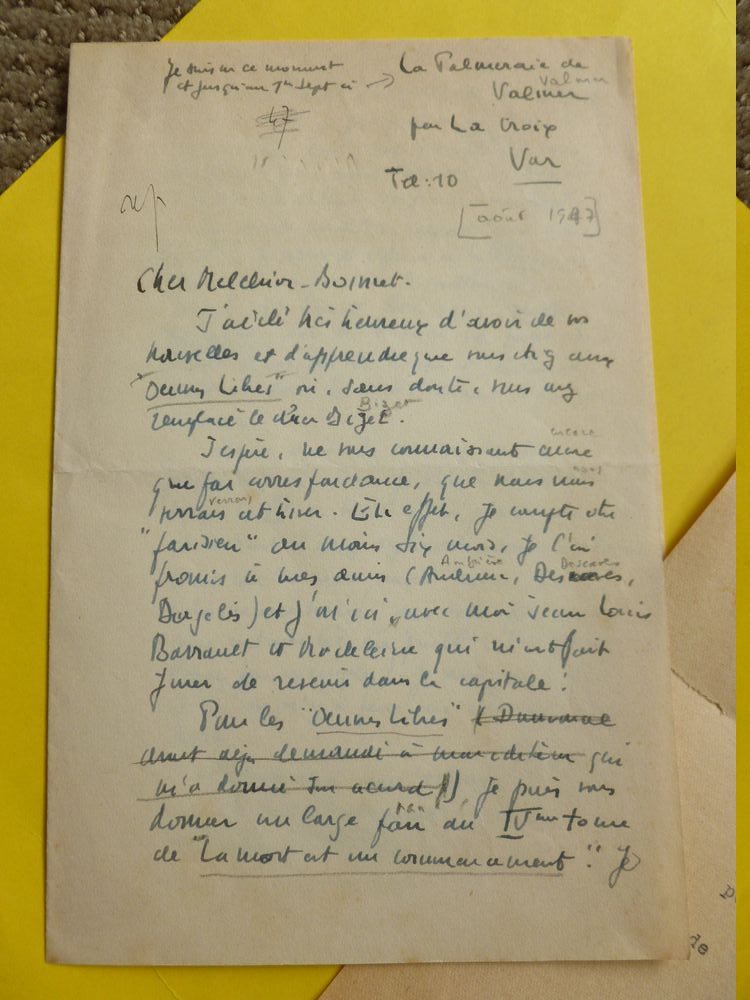 Je suis en ce moment
et jusqu'au 1er Sept à →
La Palmeraie de
Valmer
Valmer
par La Croix
Var
Tel : 10
47
rép
[août 1947]
Cher Melchior-Bonnet.
J'ai été très heureux d'avoir de vos
nouvelles et d'apprendre que vous étiez aux
"Oeuvres Libres" où, sans doute, vous avez
remplacé le cher Bizet
Bizet.
J'espère, ne vous connaissant encore
encore
que par correspondance, que nous nous
nous
verrons cet hiver. En effet, je compte être
verrons
"parisien" au moins six mois, je l'ai
promis à mes amis (Ambrière, Descaves,
Ambrière Descaves
Dorgelès) et j'ai ici, avec moi Jean Louis
Barrault et Madeleine qui m'ont fait
jurer de revenir dans la capitale !
Pour les "Oeuvres Libres"
avait déjà demandé à mon éditeur qui
m'a donné son accord)), je puis vous
donner un large pan du IVème tome
pan
de "La mort est un commencement". Je